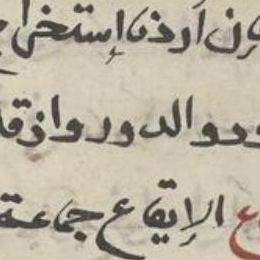 إن أردنا إستخراج
ور والدور وازقا
ع الإيقاع جماعة